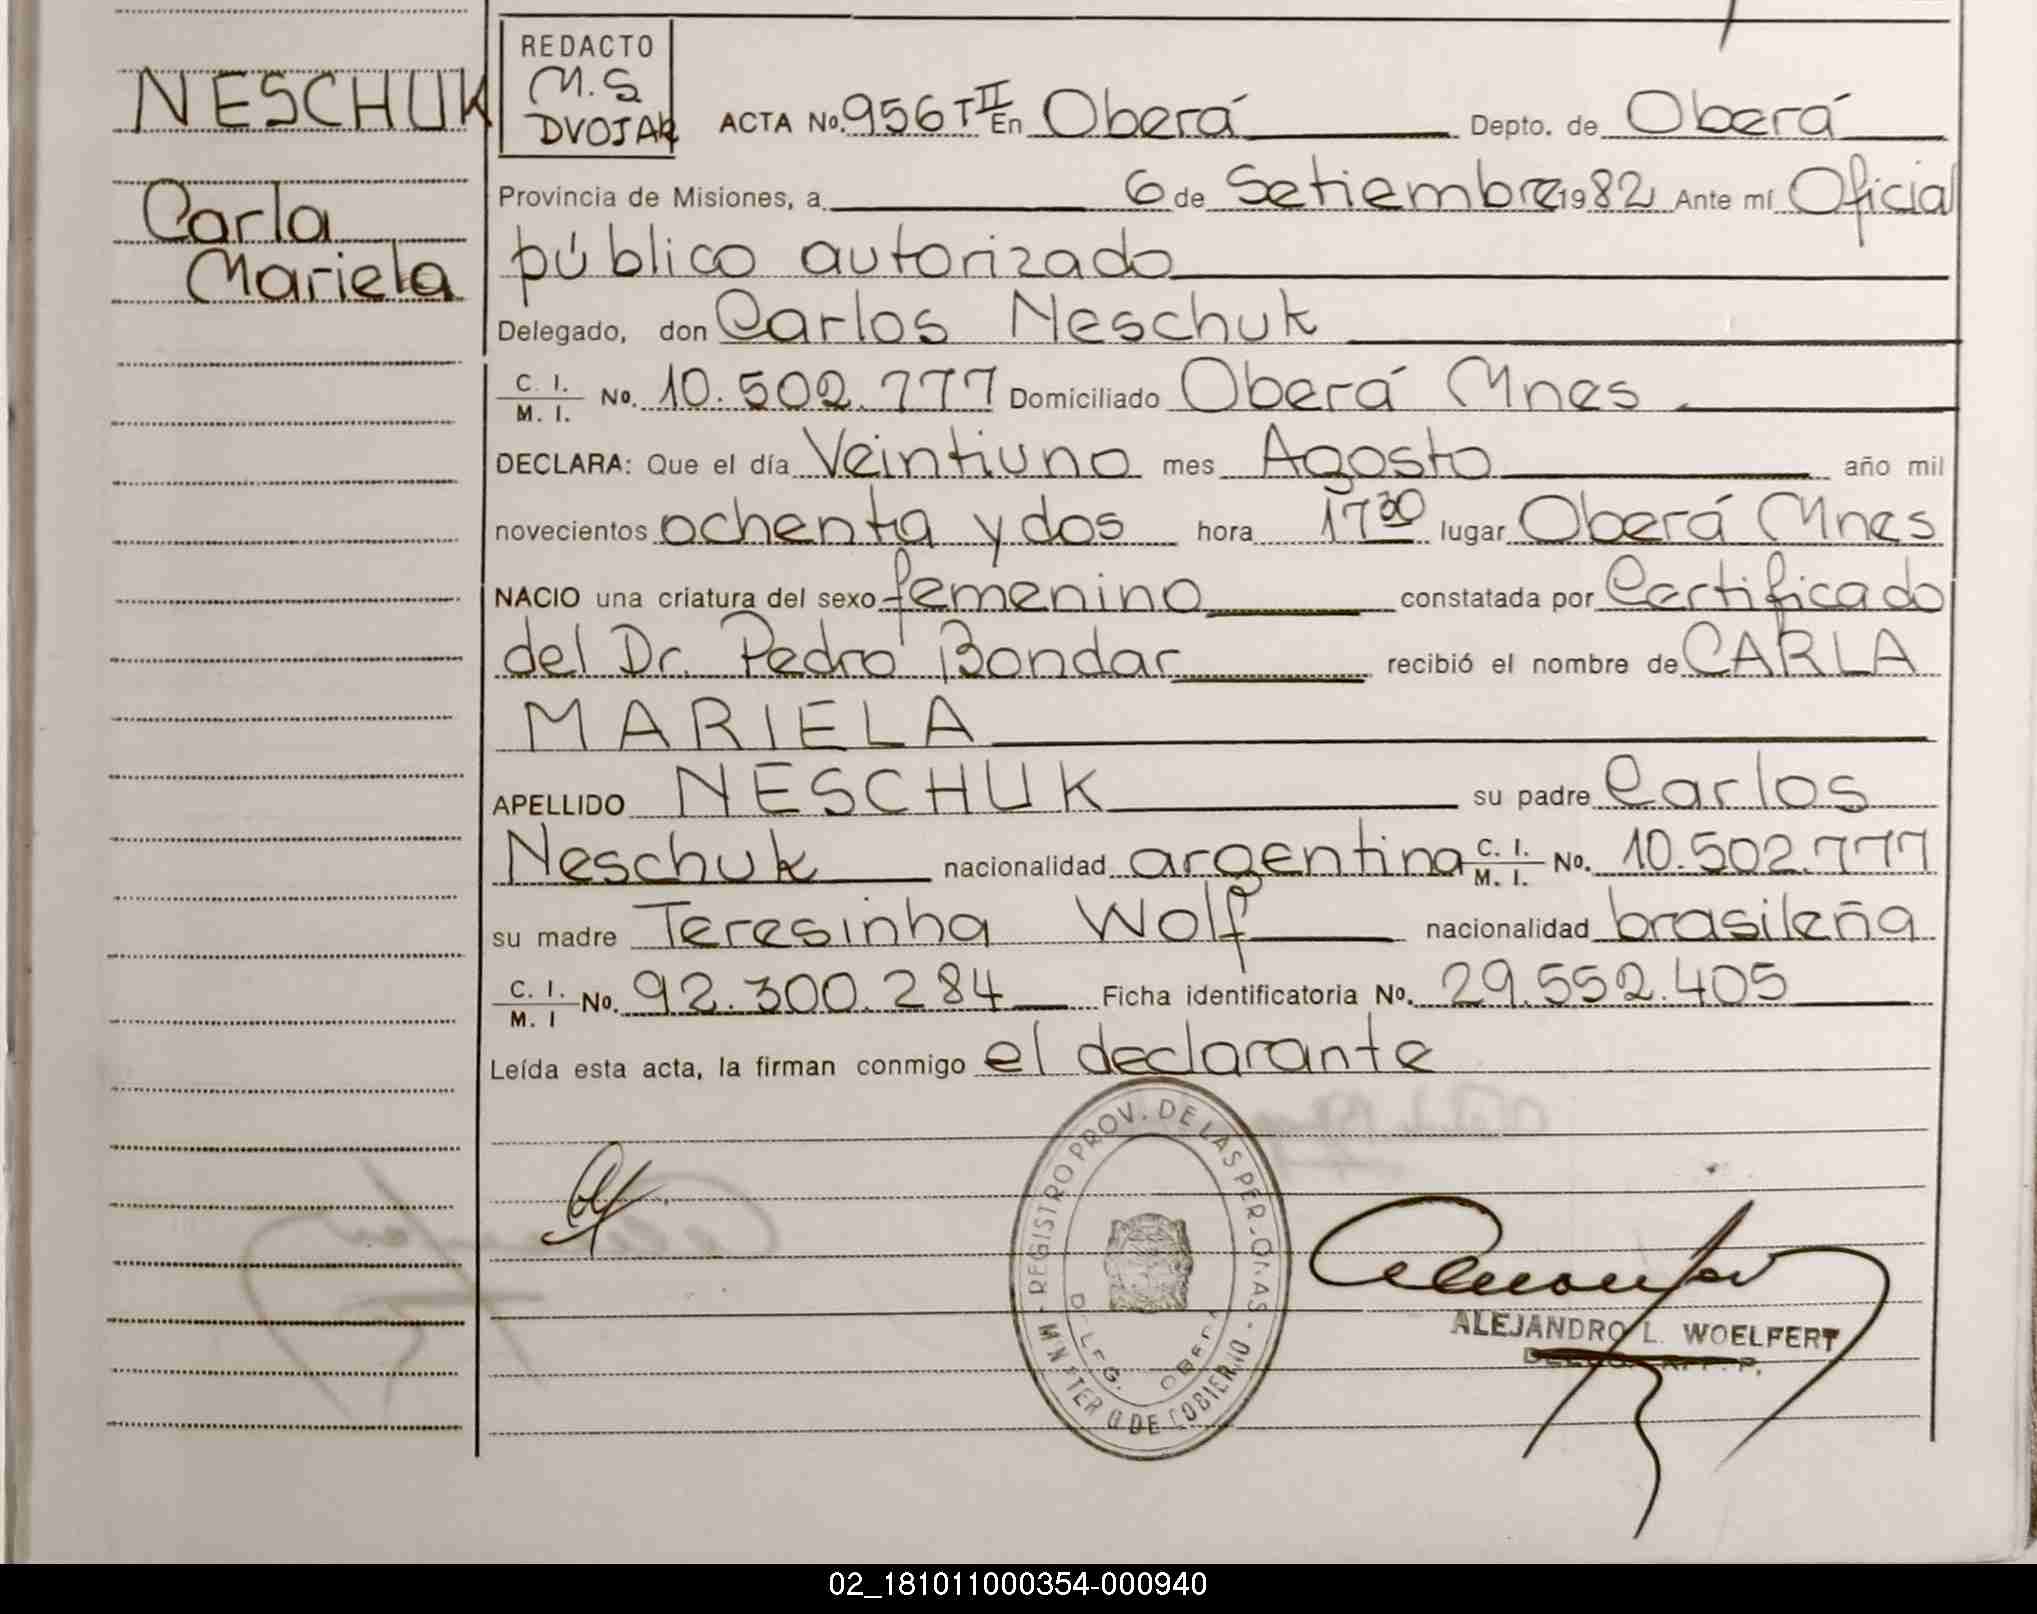 NESCHUK
Carla
Mariela
REDACTO
M.S
DVOJAK
ACTA No. 956 T II En Oberá Depto. de Oberá
Provincia de Misiones, a 6 de Setiembre 1982 Ante mí Oficial
público autorizado
Delegado, don Carlos Neschuk
C. I. / M. I. No. 10.502.777 Domiciliado Oberá Mnes
DECLARA: Que el día Veintiuno mes Agosto año mil
novecientos ochenta y dos hora 17 30 lugar Oberá Mnes
NACIO una criatura del sexo femenino constatada por Certificado
del Dr. Pedro Bondar recibió el nombre de CARLA
MARIELA
APELLIDO NESCHUK su padre Carlos
Neschuk nacionalidad argentina C. I. / M. I. No. 10.502.777
su madre Teresinha Wolf nacionalidad brasileña
C. I. / M. I No. 92.300.284 Ficha identificatoria No. 29.552.405
Leída esta acta, la firman conmigo el declarante
REGISTRO PROV. DE LAS PERSONAS
DELEG. OBERA
MINISTERIO DE GOBIERNO
ALEJANDRO L. WOELFERT
02_181011000354-000940